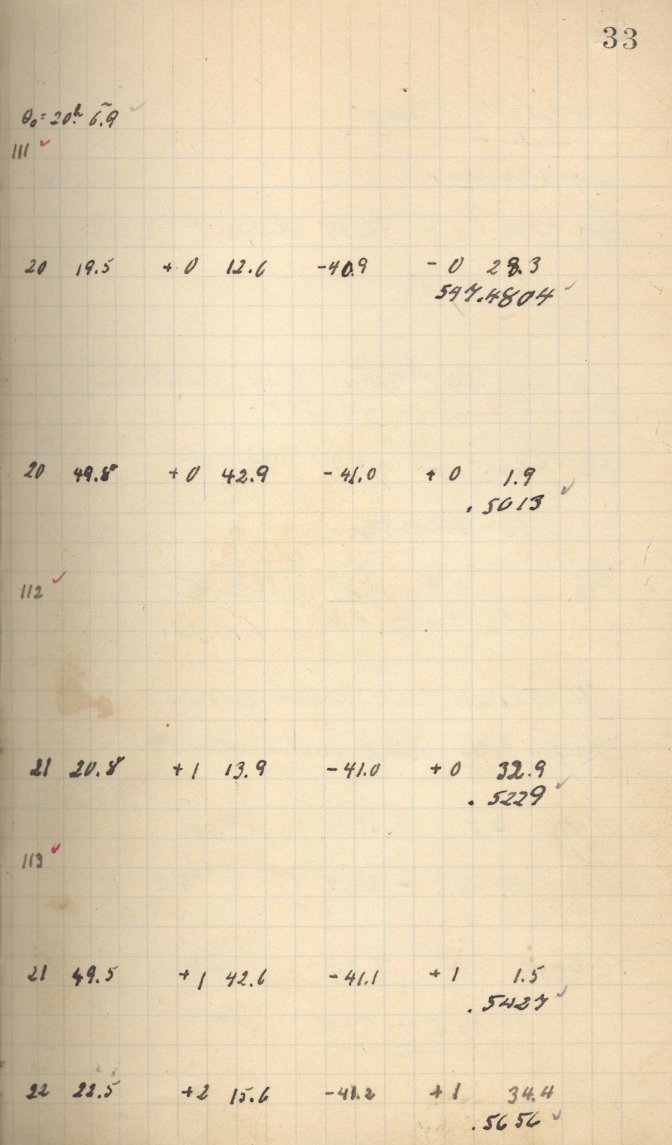 33
θ₀ = 20ʰ 6.ᵐ9 ✓
111 ✓
20 19.5 + 0 12.6 -40.9 - 0 28.3
547.4804 ✓
20 49.8 + 0 42.9 - 41.0 + 0 1.9
.5013 ✓
112 ✓
21 20.8 + 1 13.9 -41.0 + 0 32.9
.5229 ✓
113 ✓
21 49.5 + 1 42.6 -41.1 + 1 1.5
.5427 ✓
22 22.5 +2 15.6 -41.2 + 1 34.4
.5656 ✓